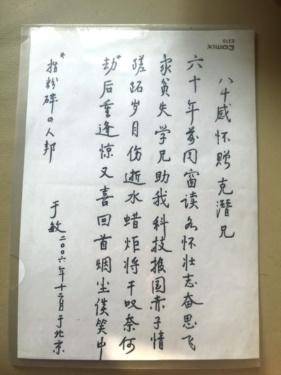 Comix
八十感怀赠克潜兄
六十年前同窗读各怀壮志奋思飞
家贫失学兄助我科技报国赤子情
蹉跎岁月伤逝水蜡炬将干叹奈何
*劫后重逢惊又喜回首烟尘谈笑中
*指粉碎四人帮
于敏二〇〇六年十二月于北京